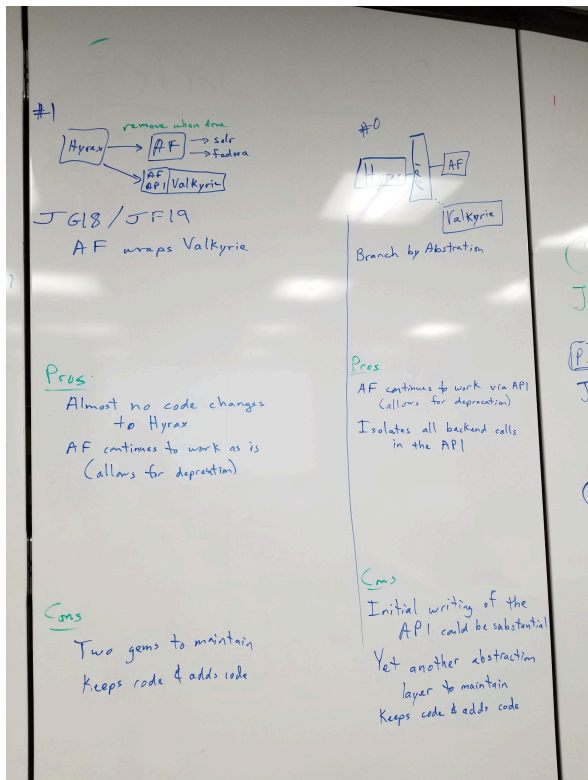 #1
remove when done
Hyrax
AF
→ solr
→ fedora
AF
API
Valkyrie
JG18 / JF19
AF wraps Valkyrie
Pros
Almost no code changes
to Hyrax
AF continues to work as is
(allows for deprecation)
Cons
Two gems to maintain
Keeps code & adds code
#0
AF
Valkyrie
Branch by Abstration
Pros
AF continues to work via API
(allows for deprecation)
Isolates all backend calls
in the API
Cons
Initial writing of the
API could be substantial
Yet another abstraction
layer to maintain
Keeps code & adds code
J
P
J